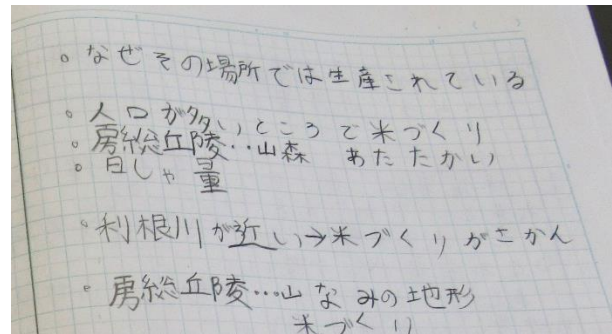 。なぜその場所では生産されている
・人口が多いところで米づくり
・房総丘陵‥山森 あたたかい
。日しゃ量
。利根川が近い→米づくりがさかん
。房総丘陵…山なみの地形
米づくり